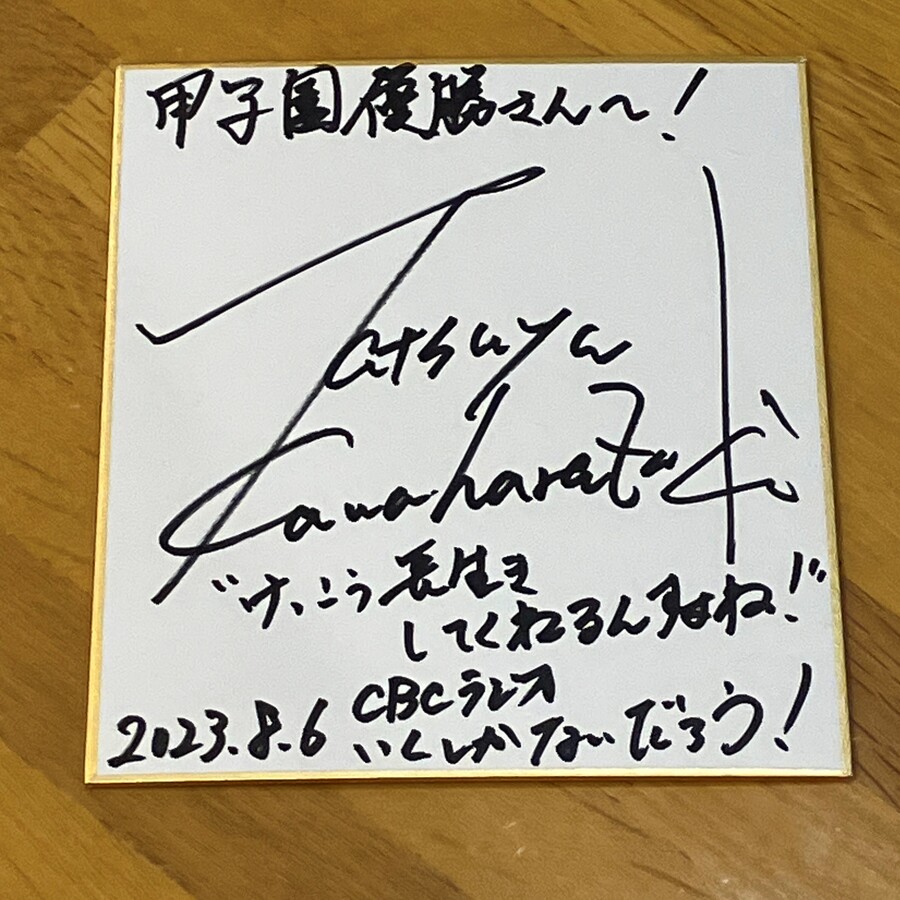 甲子園優勝さんへ!
Tatsuya
Kawaharazaki
"けっこう長生き
してくれるんすよね!"
2023.8.6 CBCラジオ
いくしかないだろう!